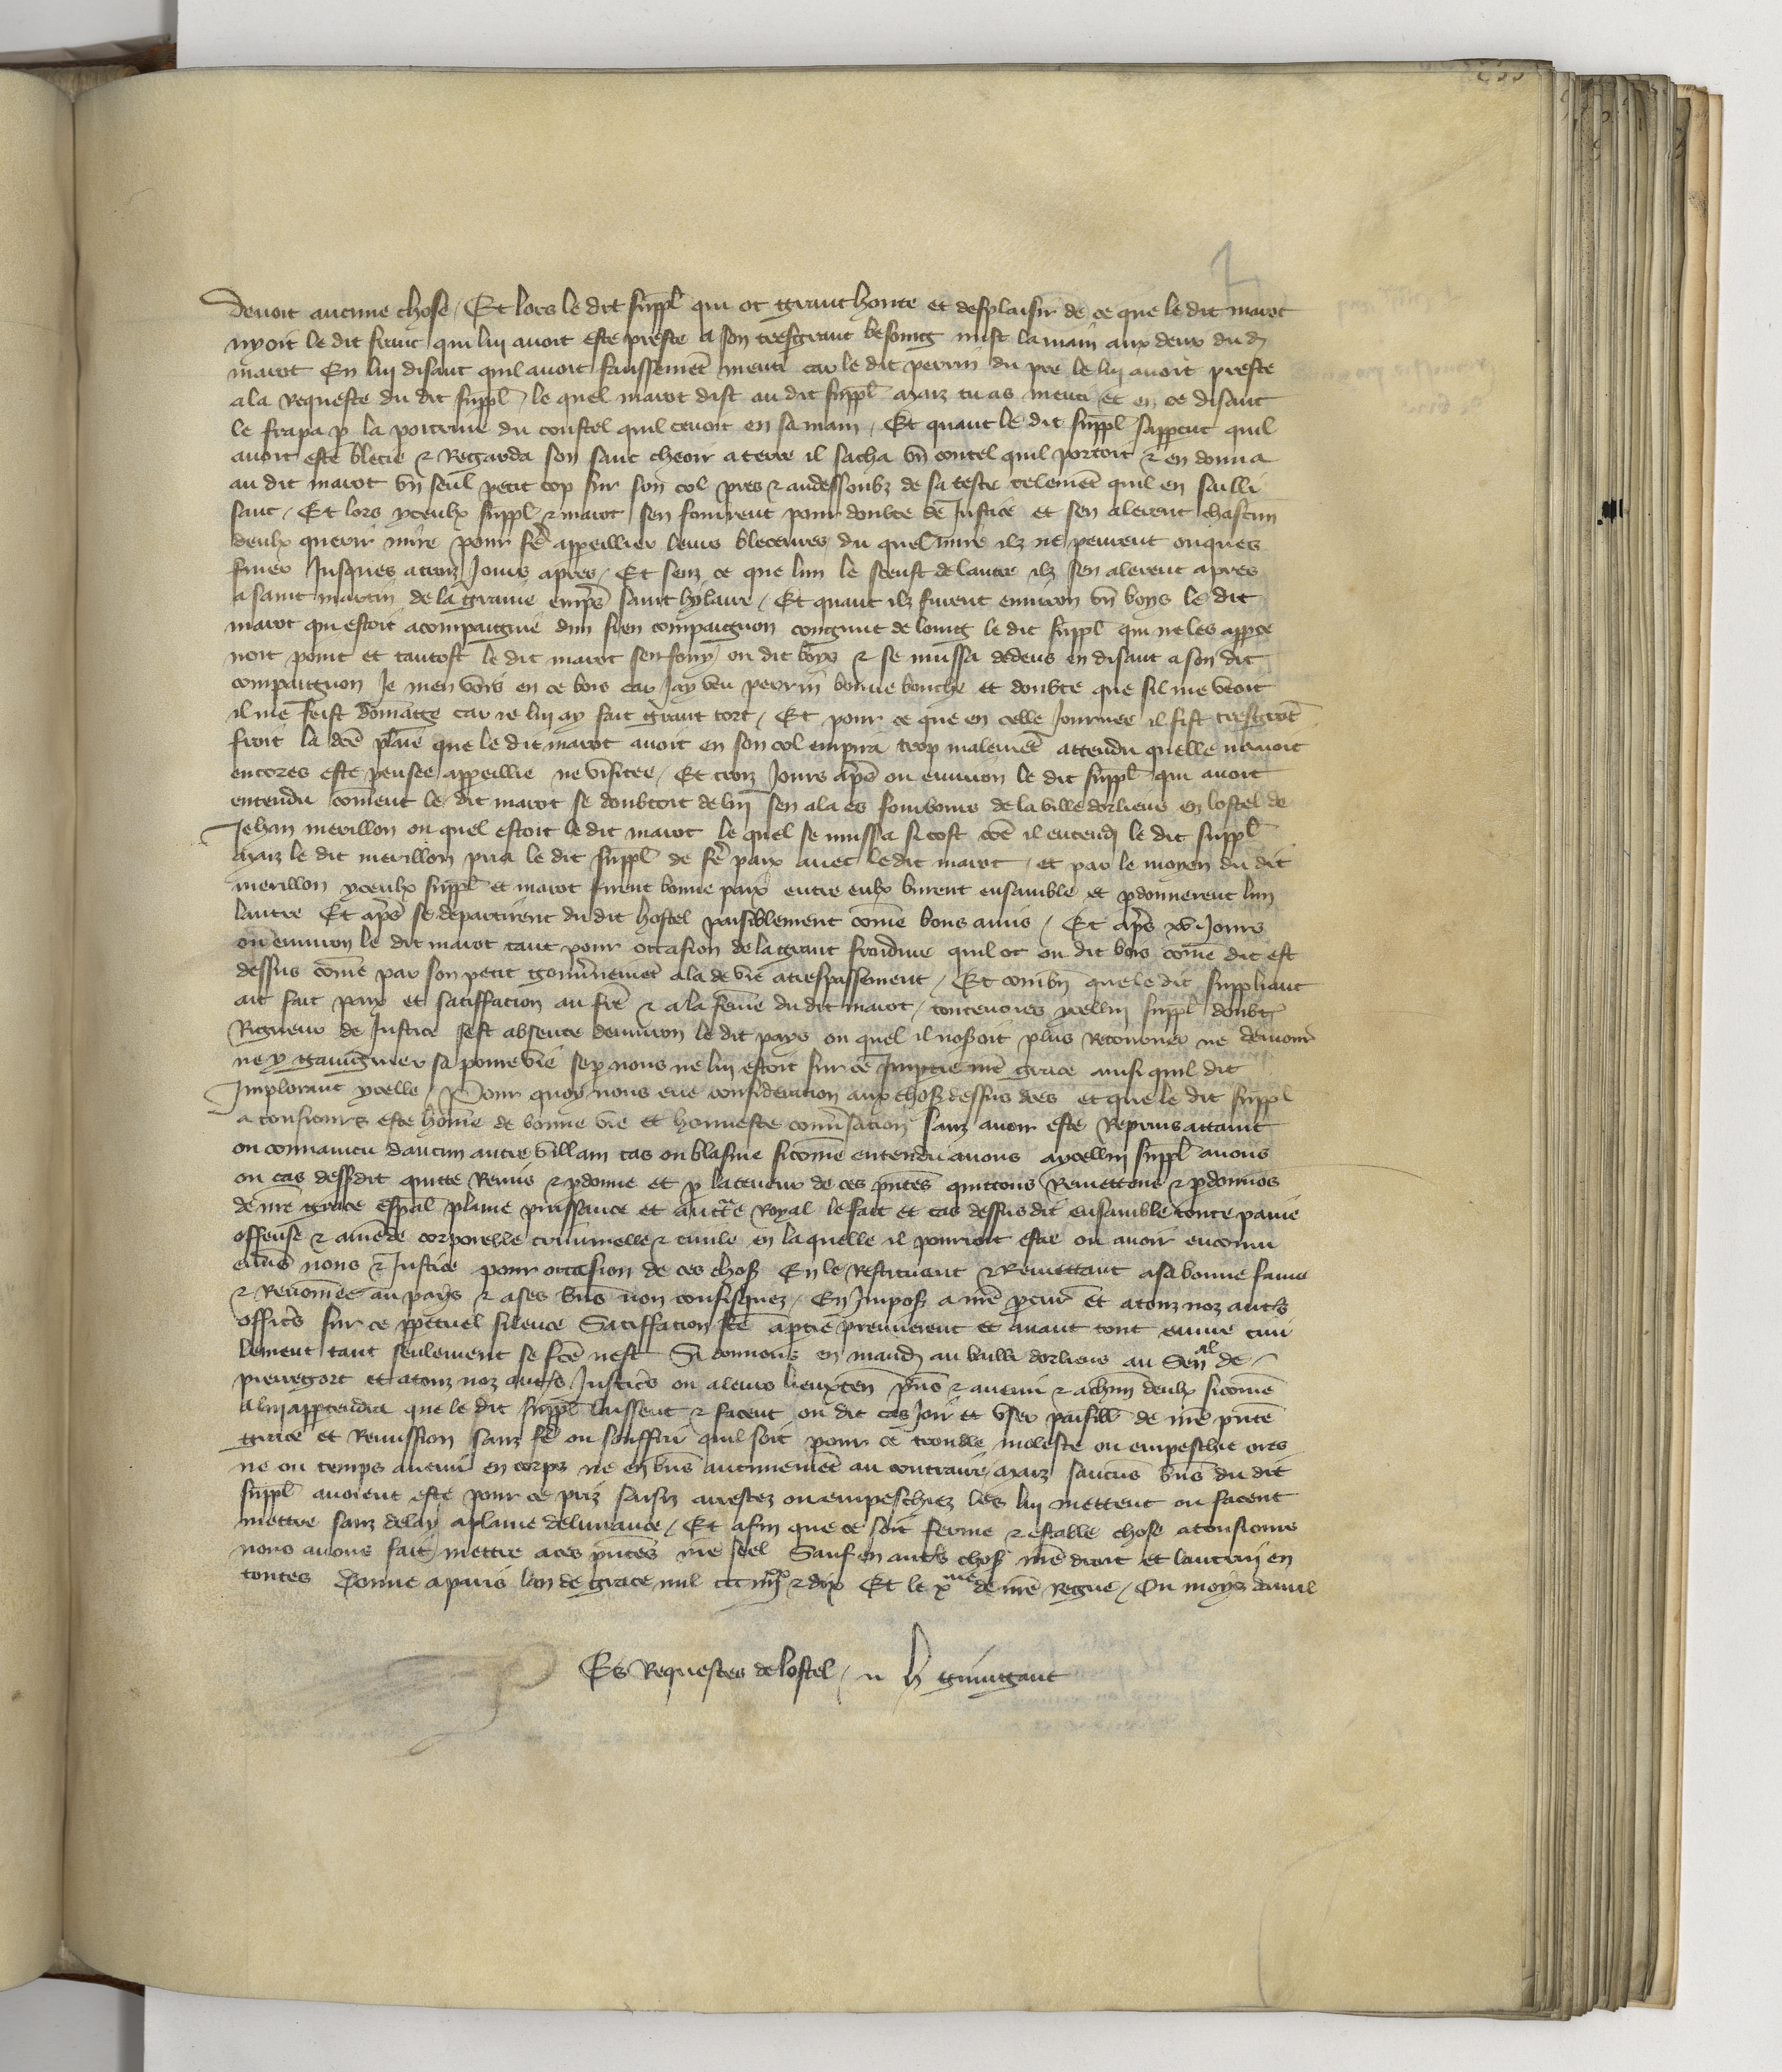 devoit aucune chose / Et lors le dit suppl̄ qui ot grant honte et desplaisir de ce que le dit marot
nyoit le dit franc qui lui avoit este preste a son tresgrant besoing mist la main aux deux du d
marot En lui disant quil avoit faussemēt menti car le dit perrin du pre le lui avoit preste
a la Requeste du dit suppl̄ / le quel marot dist au dit suppl̄ maiz tu as menti et en ce disant
le frapa p la poitrine du coustel quil tenoit en sa main / Et quant le dit suppl̄ sapperçut quil
avoit este blecie & Regarda son sanc cheoir a terre il sacha vn̄ coutel quil portoit & en donna
au dit marot vn̄ seul petit cop sur son col pres & audessoubz de sa teste telemēt quil en sailli
sanc / Et lors yceulx suppl̄ & marot sen fouirent pour doubte de Justice et sen alerent chascun
deulx querir mire pour fē appeillier leurs bleceures du quel mire ilz ne peurent onques
finer Jusques a troiz Jours apres / Et senz ce que lun le sceust de lautre ilz sen alerent apres
a saint martin de la emps saint hylaire / Et quant ilz furent environ vn̄ boys le dit
marot qui estoit acompaigne dun sien compaignon congnut de loing le dit suppl̄ qui ne les apperce
voit point et tantost le dit marot sen fouy ou dit boys & se mussa dedens en disant a son dit
compaignon Je men vois en ce bois car Jay veu perrin bonne bouche et doubte que sil me veoit
il me feist dōmage car ie lui ay fait grant tort / Et pour ce que en celle Journee il fist tresgrāt
froit la dcē plaie que le dit marot avoit en son col empira trop malemēt attendu quelle navoit
encores este pensee appeillie ne visitee / Et troiz Jours apēs ou environ le dit suppl̄ qui avoit
entendu cōment le dit marot se doubtoit de luy sen ala es fourbours de la ville dorliens en lostel de
Jehan merillon ou quel estoit le dit marot le quel se mussa si tost cōe il entendi le dit suppl̄
maiz le dit merillon pria le dit suppl̄ de fē paix avec le dit marot / et par le moyen du dit
merillon yceulx suppl̄ et marot firent bonne paix entre eulx burent ensamble et pdonnerent lun
lautre Et apēs se departirent du dit hostel paisiblement cōme bons amis / Et apēs xv Jours
ou environ le dit marot tant pour occasion de la grant froidure quil ot ou dit bois cōme dit est
dessus cōme par son petit gouvnemēt ala de vie a trespassement / Et combn̄ que le dit suppliant
ait fait paix et satiffacion au frē & a la fēme du dit marot / toutevoies ycellui suppl̄ doubt̄
Rigueur de Justice sest absente denviron le dit pays ou quel il noseroit plus Retourner ne demour̄
ne y gaaigner sa povre vie se p nous ne lui estoit sur ce Impartie nr̄e grace ainsi quil dit
Implorant ycelle / Pour quoy nous eue consideracion aux choses dessus dc̄es et que le dit suppl̄
a tousiours este hōme de bonne vie et honneste convsacion sanz avoir este Repris attaint
ou convaincu daucun autre villain cas ou blasme sicōme entendu avons a ycellui suppl̄ avons
ou cas dessdit quitte Remis & pdonne et p la teneur de ces p̄ntes quittons Remettons & pdonnōs
de nr̄e grace esp̄al plaine puissance et auctē Royal le fait et cas dessusdit ensamble toute paine
offense & amēde corporelle criminelle & civile en laquelle il pourroit estre ou avoir encouru
envs nous & Justice pour occasion de ces choses En le Restituant & Remettant a sa bonne fame
& Renōmee au pays & a ses bn̄s non confisquez / En Impos̄ a nr̄e p̄cur̄ et a touz noz autrs
offic̄rs sur ce ppetuel silence Satiffacion fc̄e a ptie premierent et avant tout euvre civi
lement tant seulement se fc̄e nest Si donnons en mand̄ au bailli dorliens au Senal de
pierregort et a touz noz autrs Justic̄rs ou a leurs lieuxten̄ p̄ns & avenir & a chūn deulx sicōme
a lui appartendra que le dit suppl̄ laissent & facent ou dit cas Joir et vser paisibl̄ de nr̄e p̄nte
grace et Remission sanz fē ou souffrir quil soit pour ce trouble moleste ou empeschie ores
ne ou temps avenir en corps ne en bn̄s aucunemēt au contraire / maiz saucūs bn̄s du dit
suppl̄ avoient este pour ce priz saisiz arrestez ou empeschiez les lui mettent ou facent
mettre sanz delay a plaine delivrance / Et afin que ce soit ferme & estable chose a tousiours
nous avons fait mettre a ces p̄ntes nr̄e seel Sauf en autrs choses nr̄e droit et lautruy en
toutes Donne a paris lan de grace mil ccc iiijxx & dix Et le xme de nr̄e Regne / Ou moys davril
Es Requestes de lostel / n h guingant